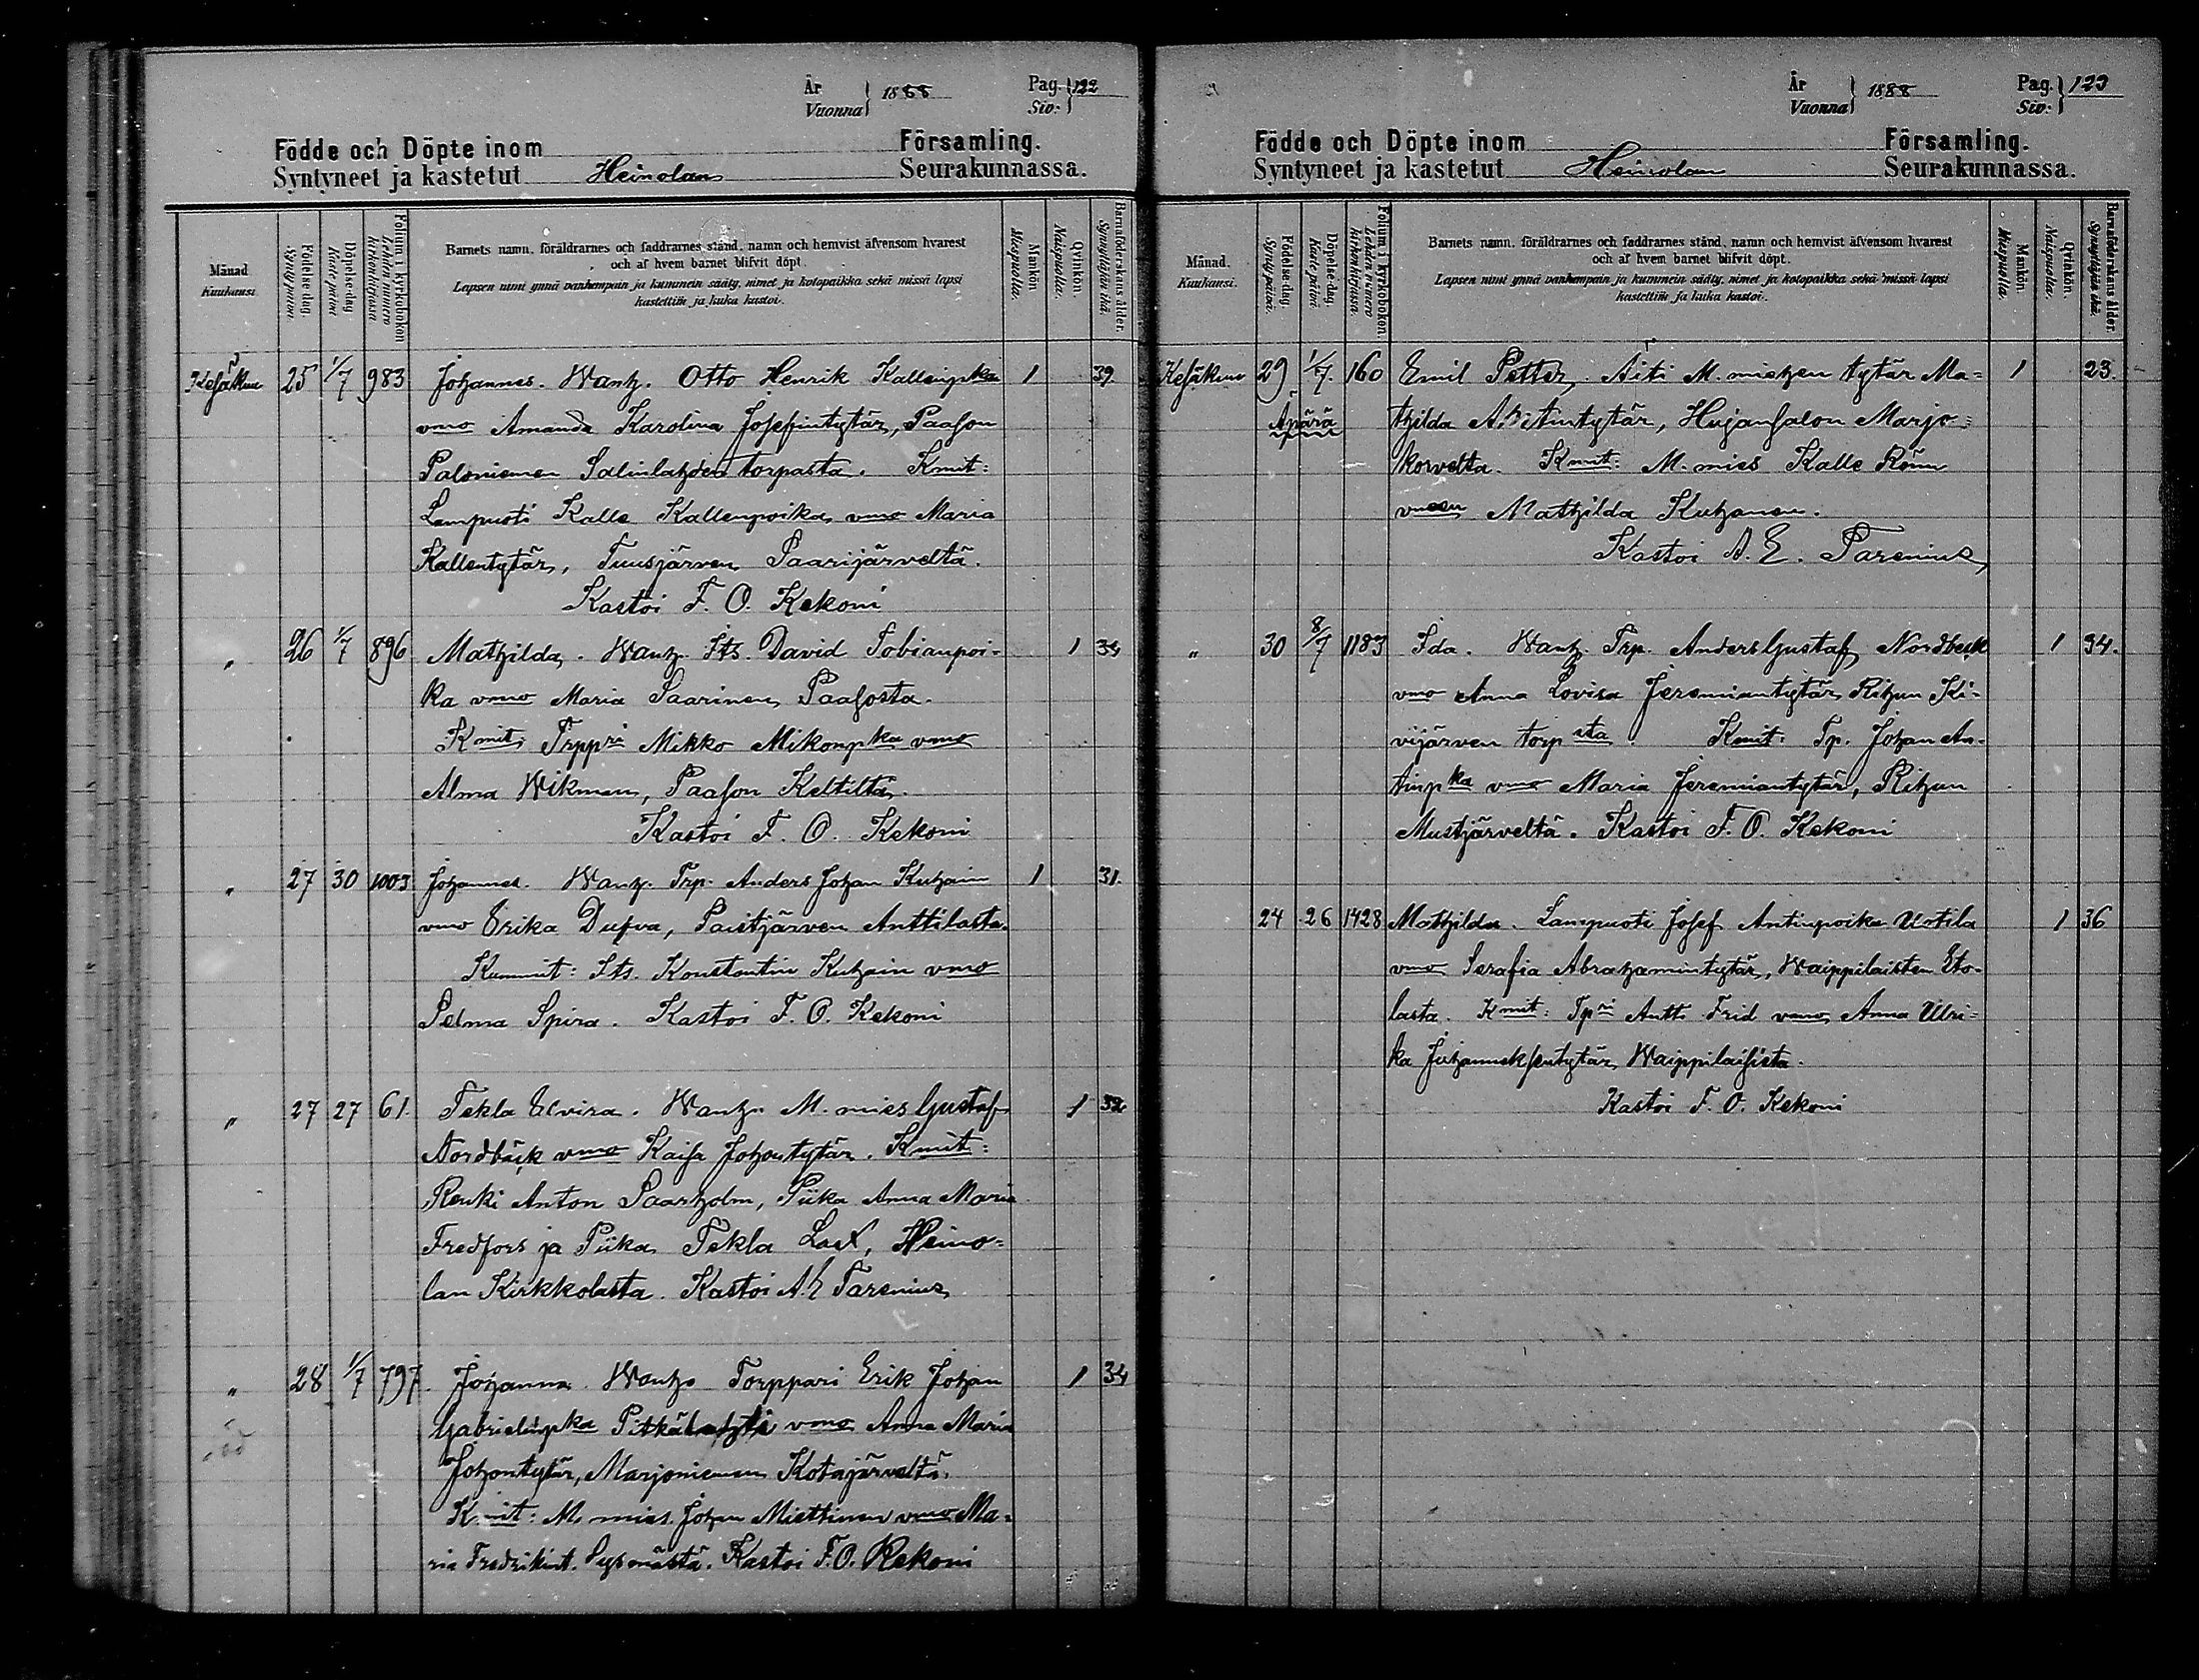 År
Vuonna } 1888
Pag. } 122
Siv:
Födde och Döpte inom Församling.
Syntyneet ja kastetut Heinolan Seurakunnassa.
Månad
Kuukausi
Födelse-dag.
Syntypäivä.
Döpelse-dag.
Kastepäivä
Folium i kyrkobokon
Lehden numero
kirkonkirjassa
Barnets namn, föräldrarnes och faddrarnes stånd, namn och hemvist äfvensom hvarest
och af hvem barnet blifvit döpt.
Lapsen nimi ynnä vanhempain ja kummein sääty, nimet ja kotopaikka sekä missä lapsi
kastettiin ja kuka kastoi.
Mankön.
Miespuolia.
Qvinkön.
Naispuolia.
Barnaföderskans ålder.
Synnyttäjän ikä.
Kesäkuu 25 1/7 983 Johannes. Wanh. Otto Henrik Kallenpka 1 39.
vmo Amanda Karolina Josefintytär, Paason
Paloniemen Salinlahden torpasta. Kmit:
Lampuoti Kalle Kallenpoika vmo Maria
Kallentytär, Tuusjärven Saarijärveltä.
Kastoi F. O. Kekoni
" 26 1/7 896 Mathilda. Wanh. Its. David Tobianpoi-
ka vmo Maria Saarinen Paasosta. 1 34
Kmit: Trppri Mikko Mikonpka vmo
Alma Wikman, Paason Keltiltä.
Kastoi F. O. Kekoni
" 27 30 1003 Johannes. Wanh. Trp. Anders Johan Kuhain 1 31.
vmo Erika Dufva, Paistjärven Anttilasta.
Kummit: Its. Konstantin Kuhain vmo
Selma Spira. Kastoi F. O. Kekoni
" 27 27 61. Tekla Elvira. Wanh. M. mies Gustaf 1 32
Nordbäck vmo Kaisa Johantytär. Kmit:
Renki Anton Saarholm, Piika Anna Maria
Fredfors ja Piika Tekla Lax, Heino-
lan Kirkkolasta. Kastoi A. E Tarenius
" 28 1/7 797. Johanna. Wanh. Torppari Erik Johan 1 34
Gabrielinpka Pitkälahti vmo Anna Maria
Johantytär, Marjoniemen Kotajärveltä.
Kmit: M. mies. Johan Miettinen vmo Ma-
ria Fredrikint. Sysmästä. Kastoi F. O. Kekoni
År
Vuonna } 1888
Pag. } 123
Siv:
Födde och Döpte inom Församling.
Syntyneet ja kastetut Heinolan Seurakunnassa.
Månad.
Kuukausi.
Födelse-dag.
Syntypäivä.
Döpelse-dag.
Kastepäivä.
Folium i kyrkobokon
Lehden numero
kirkonkirjassa.
Barnets namn, föräldrarnes och faddrarnes stånd, namn och hemvist äfvensom hvarest
och af hvem barnet blifvit döpt.
Lapsen nimi ynnä vanhempain ja kummein sääty, nimet ja kotopaikka sekä missä lapsi
kastettiin ja kuka kastoi.
Mankön.
Miespuolia.
Qvinkön.
Naispuolia.
Barnaföderskans ålder.
Synnyttäjän ikä.
Kesäkuu 29 1/7. 160 Emil Petter. Äiti M. miehen tytär Ma- 1 23.
Äpärä thilda Antintytär, Hujansalon Marjo-
korvelta. Kmit: M. mies Kalle Rönn
vmoen Mathilda Kuhanen.
Kastoi A. E. Tarenius
" 30 8/7 1183 Ida. Wanh. Trp. Anders Gustaf Nordbäck 1 34.
vmo Anna Lovisa Jeremiantytär Rihun Ki-
vijärven torpsta. Kmit: Tp. Johan An-
tinpka vmo Maria Jeremiantytär, Rihun
Mustjärveltä. Kastoi F. O. Kekoni
24 26 1428 Mathilda. Lampuoti Josef Antinpoika Uotila 1 36
vmo Serafia Abrahamintytär, Waippilaisten Eto-
lasta. Kmit: Tpri Antti Frid vmo Anna Ulri-
ka Juhanneksentytär Waippilaisista.
Kastoi F. O. Kekoni